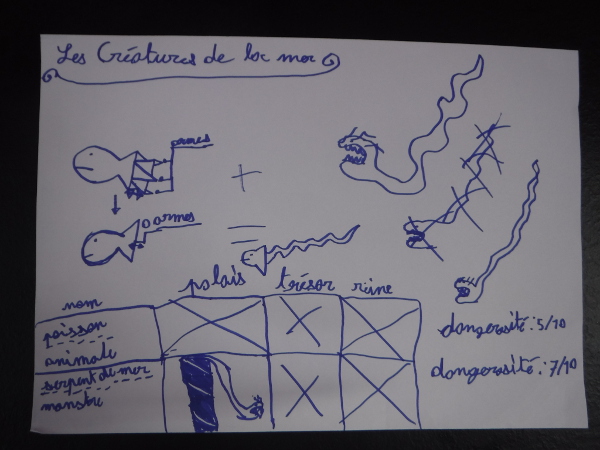 Les Créatures de la mer
armes
0 armes
palais trésor reine
nom
poisson
animale
dangerosité : 5/10
serpent de mer
monstre
dangerosité : 7/10